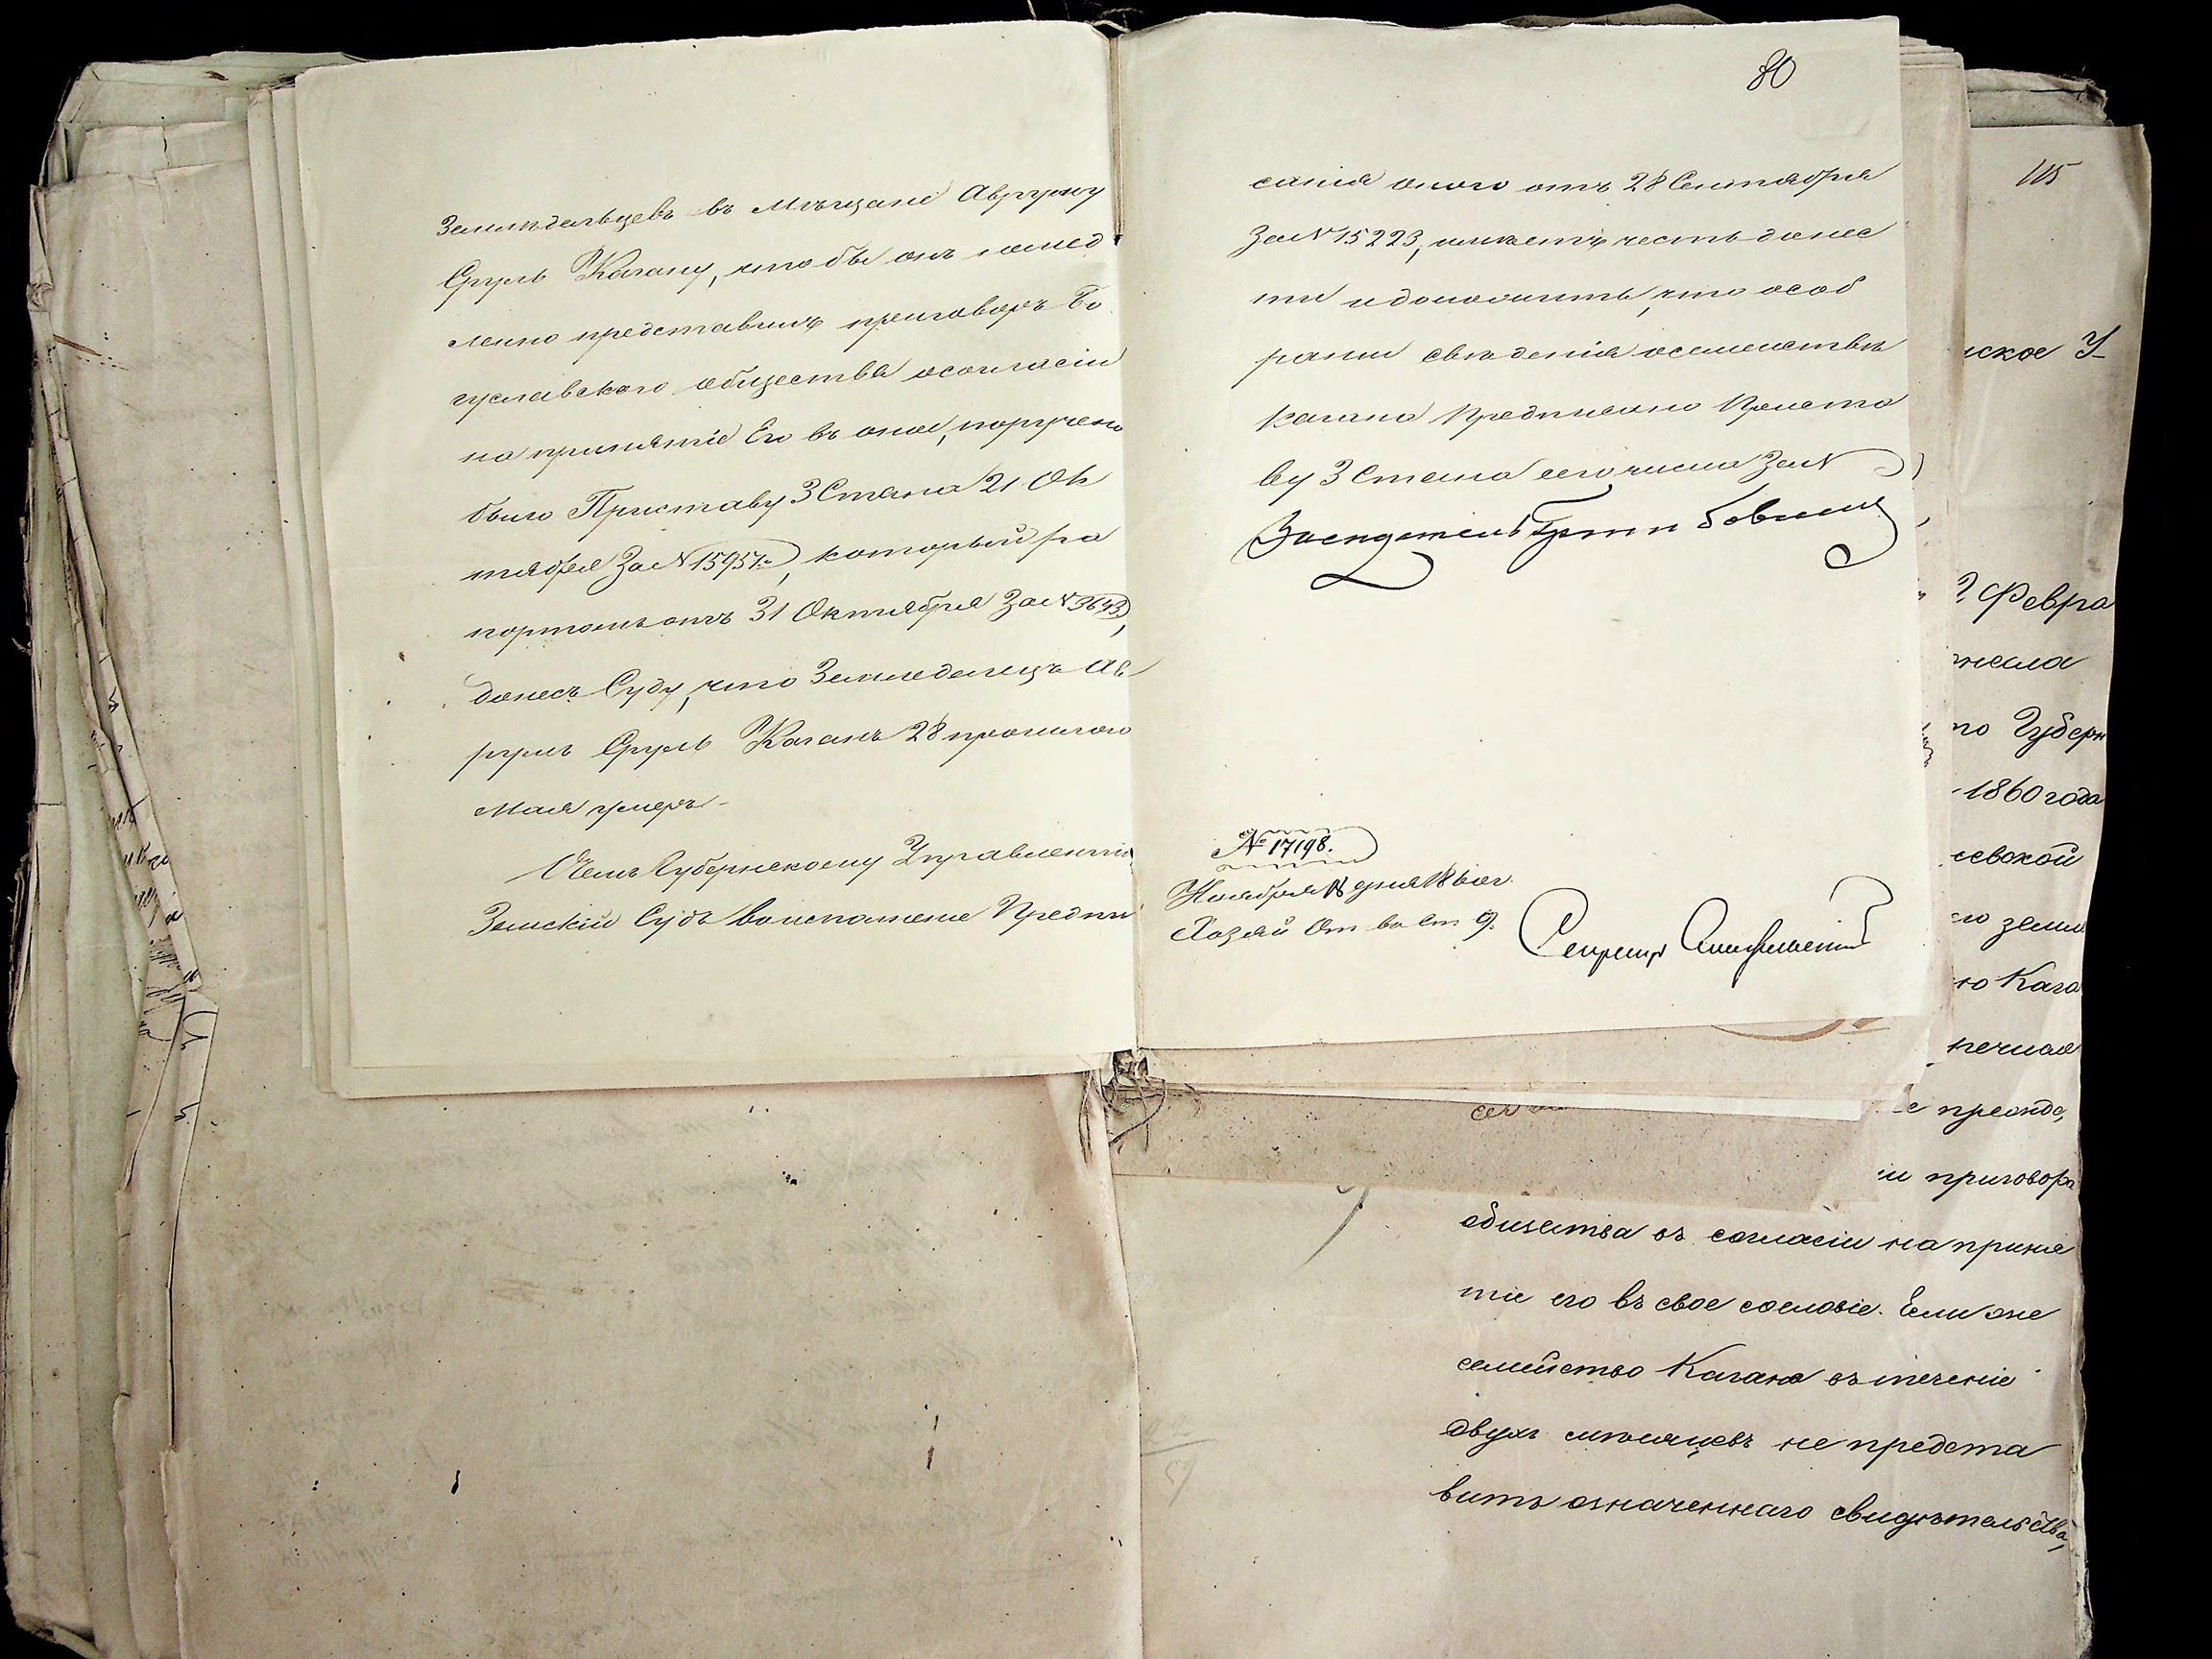 Земледѣльцевъ въ Мѣщане Авруму
Срулю Кагану, чтобы онъ немед
ленно представилъ приговоръ Бо
гуславскаго общества о согласіи
на принятіе Его въ оное, поручено
было Приставу 3 Стана 21 Ок
тября За № 15957, который ра
портомъ отъ 31 Октября За № 3643,
донесъ Суду, что Земледелецъ Ав
румъ Сруль Каганъ 28 прошлаго
Мая умеръ
О чемъ Губернскому Управленію
Земскій Судъ во исполненіе Предпи
80
санія онаго отъ 28 Сентября
За № 15223, имѣетъ честь донес
ти и дополнить, что о соб
раніи свѣденія о семействѣ
Кагана Предписано Приста
ву 3 Стана сего числа За №
Засѣдатель
№ 17198.
Ноября дня
Хозяй От во ст 9.
Секретарь
115
ское У
Февра
по Губерн
1860 года
евской
го земл
ю Кага
приговора
общества въ согласіи на приня
тіе его въ свое сословіе. Если же
семейство Кагана въ теченіе
двухъ мѣсяцевъ не предста
витъ означеннаго свидѣтельства,